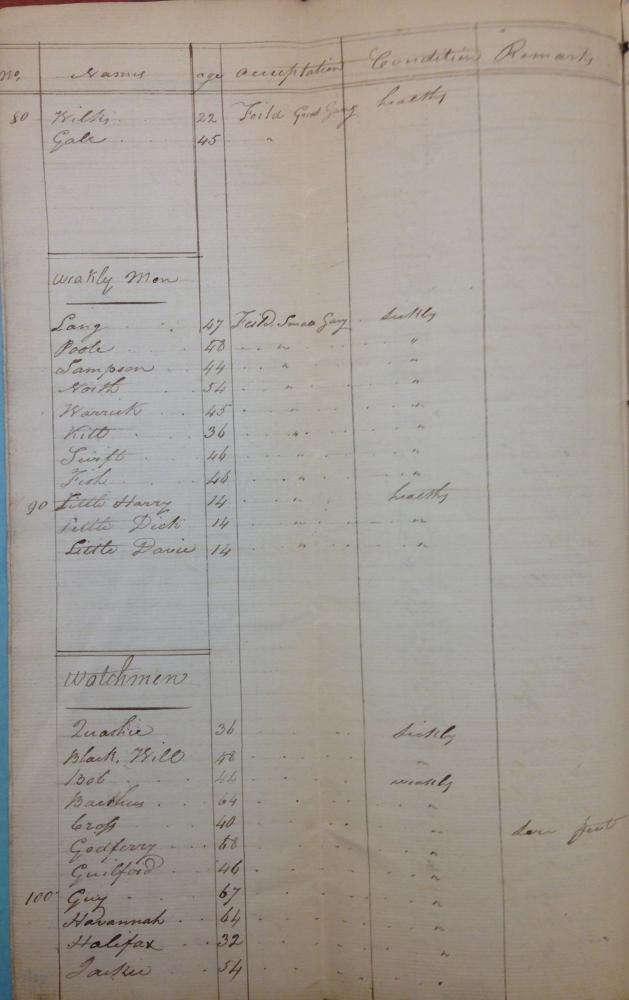 No, Names age Accuptation Condition Remarks
80 Wilks 22 Feild Great Gang healthy
Gale 45 "
Weakly Men
Lang 47 Feild Small Gang sickly
Poole 48 " "
Sampson 44 " "
North 54 " "
Warrick 45 " "
Kitt 36 " "
Swift 46 " "
Fish 46 " "
90 Little Harry 14 " healthy
Little Dick 14 " "
Little Davie 14 " "
Watchmen
Quashie 36 sickly
Black Will 48 "
Bob 44 weakly
Bacchus 64 "
Cross 40 " sore feet
Godferry 58 "
Guilford 46 "
100 Guy 67 "
Havannah 64 "
Halifax 32 "
Jackie 54 "